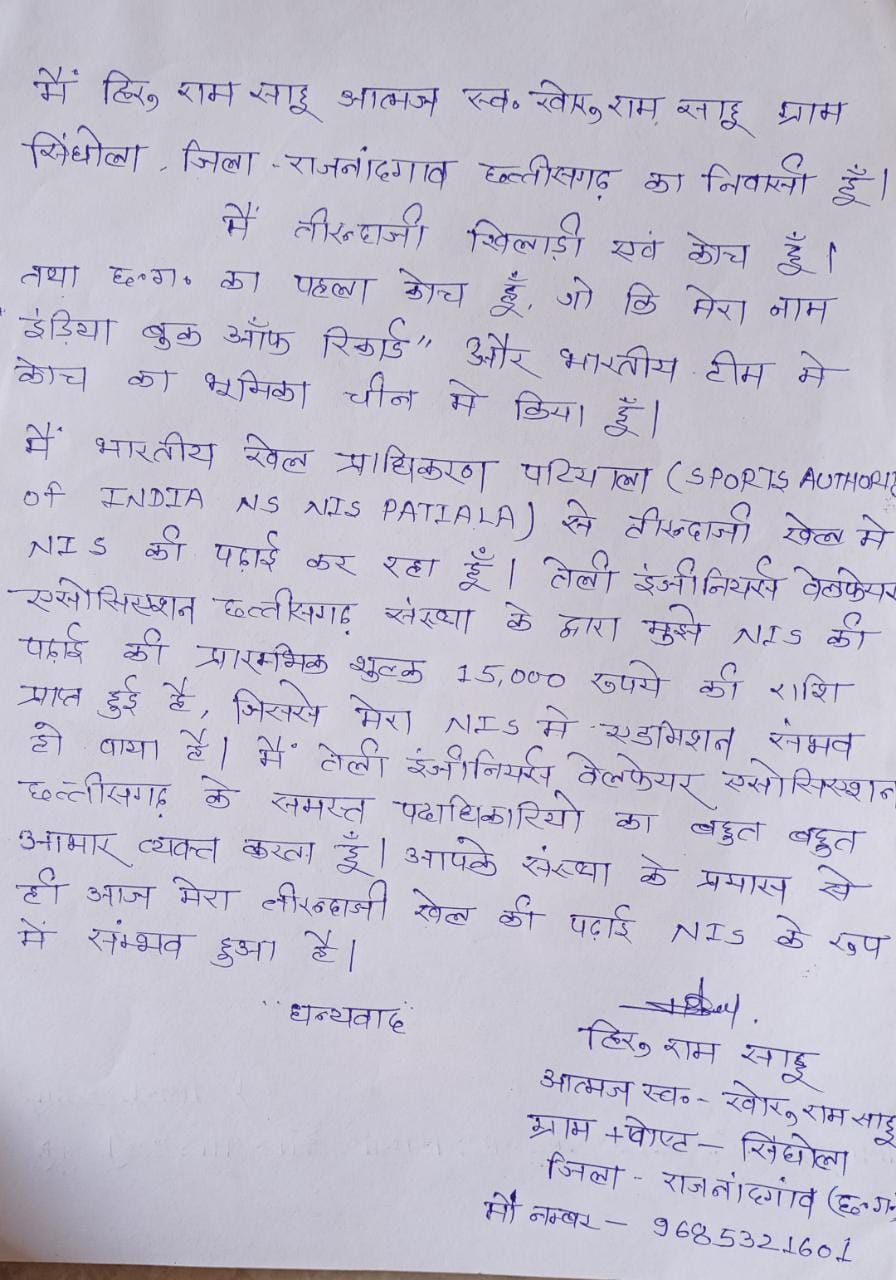 मैं हिरु राम साहू आत्मज स्व. खोरु राम साहू ग्राम
सिंघोला, जिला - राजनांदगाव छत्तीसगढ़ का निवासी हूँ।
मैं तीरन्दाजी खिलाड़ी एवं कोच हूँ।
तथा छ.ग. का पहला कोच हूँ, जो कि मेरा नाम
"इंडिया बुक ऑफ रिकार्ड" और भारतीय टीम मे
कोच का भूमिका चीन मे किया हूँ।
मैं भारतीय खेल प्राधिकरण पटियाला (SPORTS AUTHORI
of INDIA NS NIS PATIALA) से तीरन्दाजी खेल मे
NIS की पढ़ाई कर रहा हूँ। तेली इंजीनियर्स वेलफेयर
एसोसिएशन छत्तीसगढ़ संस्था के द्वारा मुझे NIS की
पढ़ाई की प्रारम्भिक शुल्क 15,000 रुपये की राशि
प्राप्त हुई है, जिससे मेरा NIS मे एडमिशन संभव
हो पाया है। मैं तेली इंजीनियर्स वेलफेयर एसोसिएशन
छत्तीसगढ़ के समस्त पदाधिकारियो का बहुत बहुत
आभार व्यक्त करता हूँ। आपके संस्था के प्रयास से
ही आज मेरा तीरन्दाजी खेल की पढ़ाई NIS के रूप
में संम्भव हुआ है।
"धन्यवाद"
हिरु राम साहू
आत्मज स्व. - खोरु राम साहू
ग्राम + पोस्ट - सिंघोला
जिला - राजनांदगांव (छ.ग.)
मो नम्बर - 9685321601